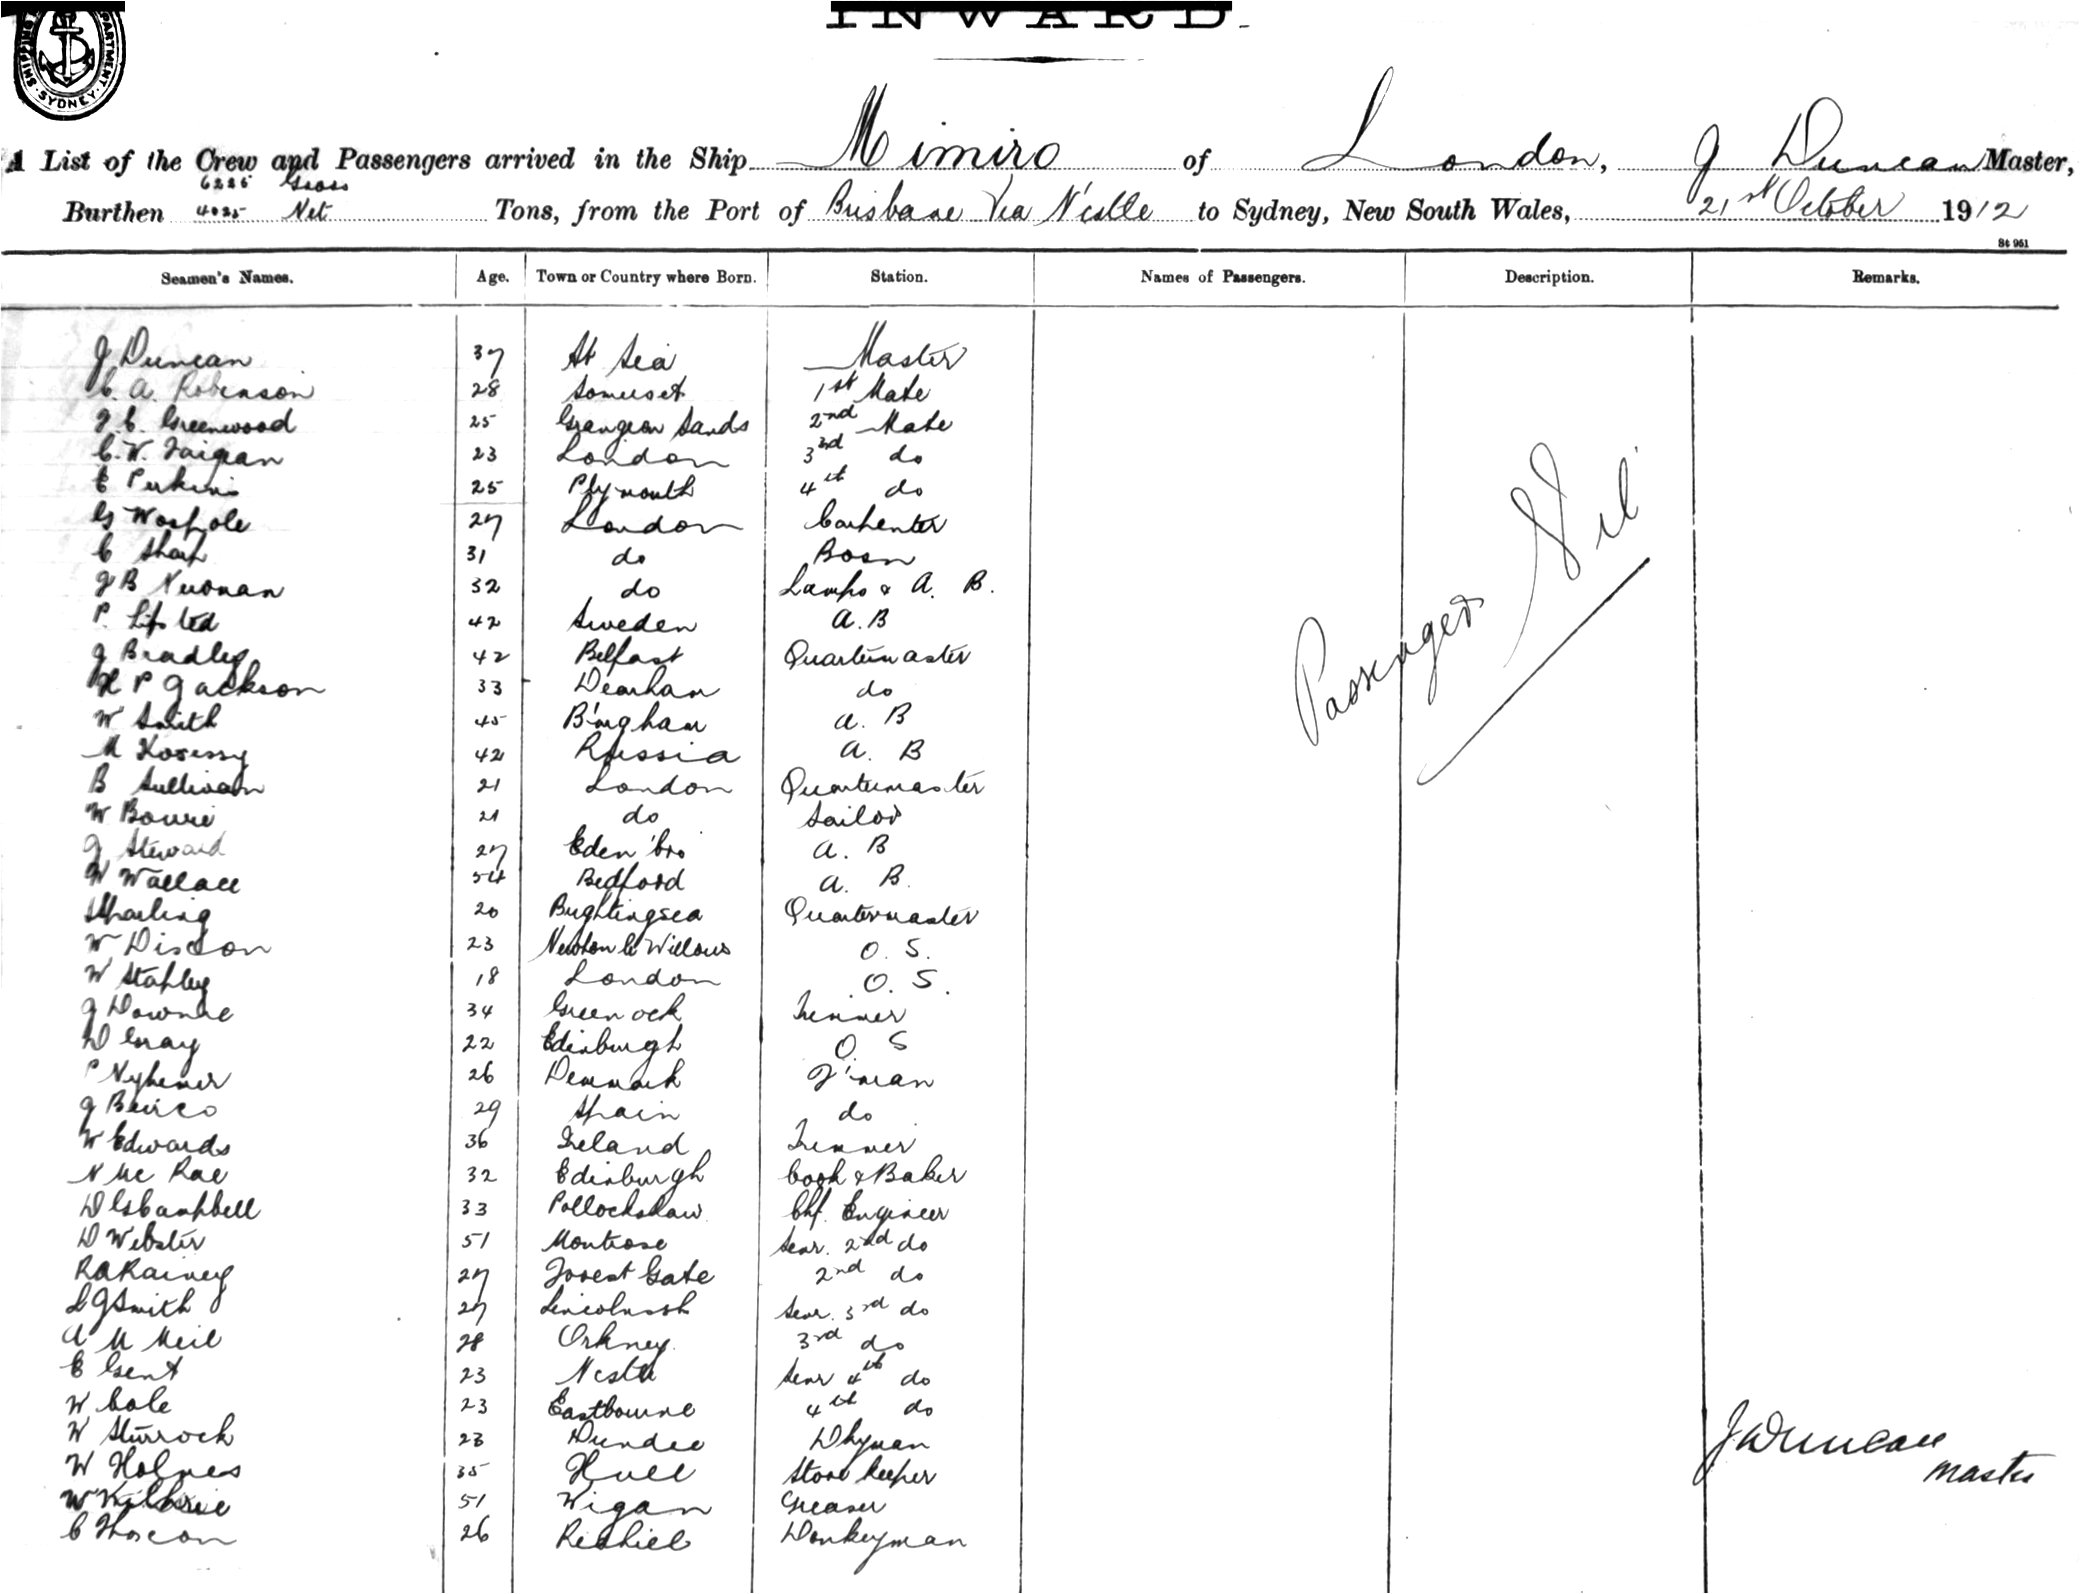 INWARD.
SHIPPING DEPARTMENT SYDNEY
A List of the Crew and Passengers arrived in the Ship Mimiro of London, J Duncan Master,
6225 Gross
Burthen 4025 Net Tons, from the Port of Brisbane Via N'castle to Sydney, New South Wales, 21st October 1912
St 961
Seamen's Names. Age. Town or Country where Born. Station. Names of Passengers. Description. Remarks.
J Duncan 37 At Sea Master
C. A. Robinson 28 Somerset 1st Mate
J. C. Greenwood 25 Sands 2nd Mate
C. W. 23 London 3rd do
E Perkins 25 Plymouth 4th do
G Woshole 27 London Carpenter
C Sharp 31 do Bosn
J B Newman 32 do Lamps & A. B.
P. Lipsted 42 Sweden A. B
J Bradley 42 Belfast Quartermaster
H P Jackson 33 Dearham do
W Smith 45 B'mgham A. B
M 42 Russia A. B
B Sullivan 21 London Quartermaster
W Bowie 21 do Sailor
J Steward 27 Eden'bro A. B
W Wallace 54 Bedford A. B
Sparling 20 Brightingsea Quartermaster
W Disdon 23 Newton le Willows O. S.
W Stapley 18 London O. S.
J Downie 34 Greenock Trimmer
D Gray 22 Edinburgh O. S
P 26 Denmark F'man
J 29 Spain do
W Edwards 36 Ireland Trimmer
N Mc Rae 32 Edinburgh Cook & Baker
D G Campbell 33 Pollockshaw Chf. Engineer
D Webster 51 Montrose Senr. 2nd do
R A Rainey 27 Forest Gate 2nd do
L G Smith 27 Senr. 3rd do
A M Meil 28 Orkney. 3rd do
E Gent 23 Senr 4th do
W Cole 23 Eastbourne 4th do
W Sturrock 23 Dundee Dkyman
W Holmes 35 Hull Store keeper
W Kilbrie 51 Wigan Greaser
C 26 Donkeyman
Passengers Nil
J. Duncan
Master